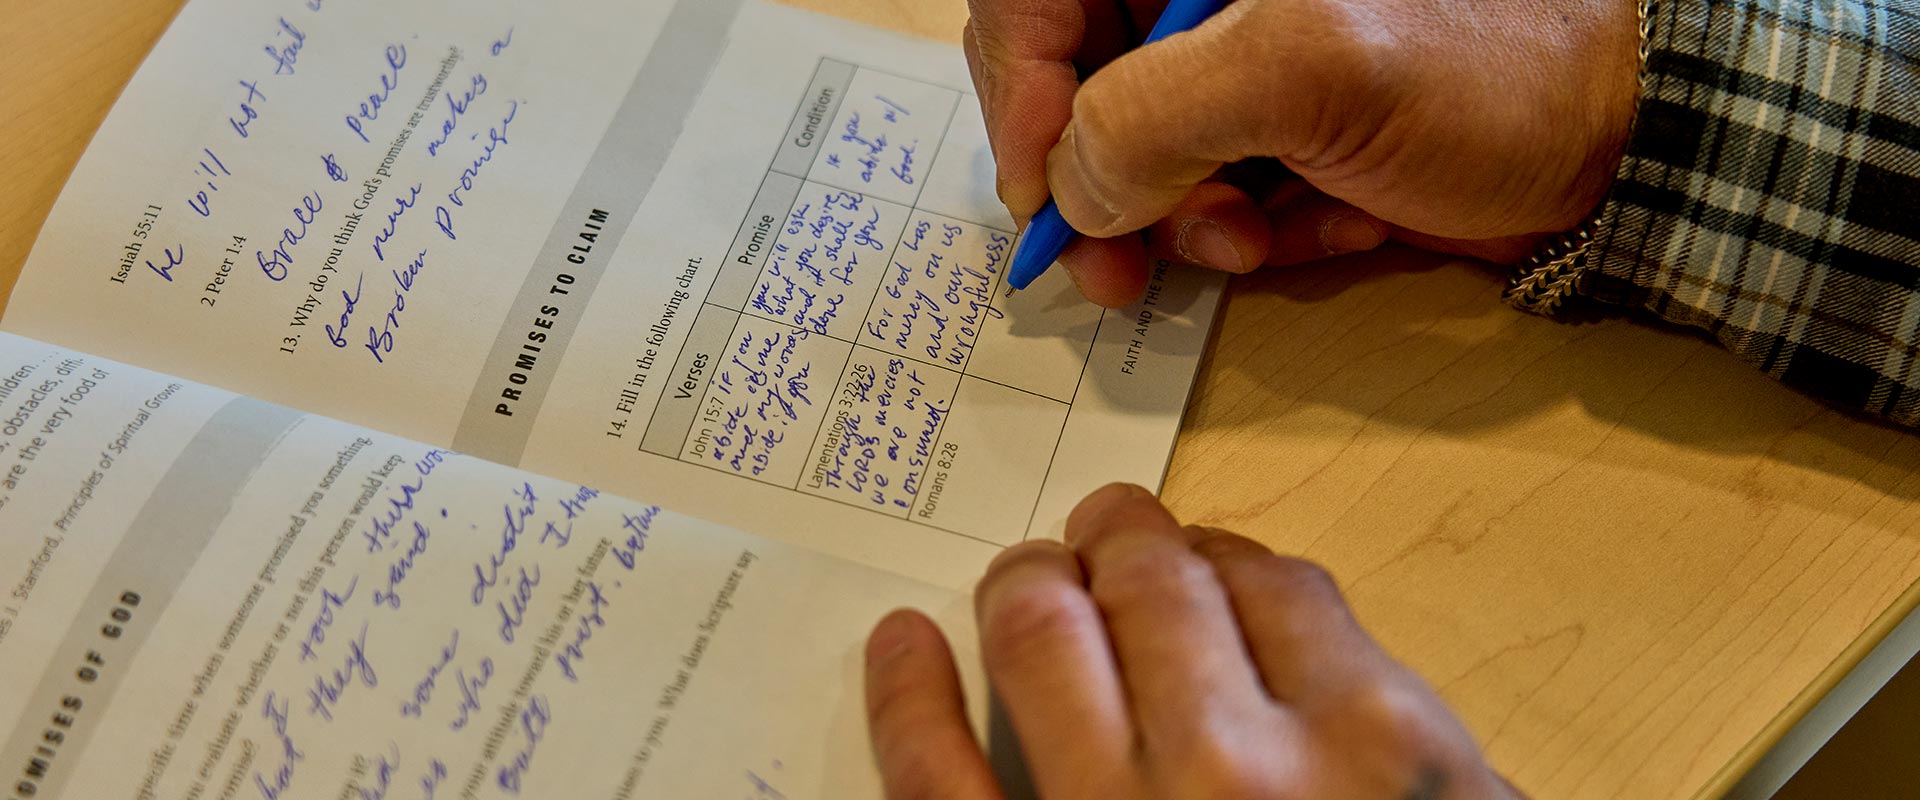 he will not fail
Isaiah 55:11
2 Peter 1:4
Grace & peace.
13. Why do you think God's promises are trustworthy?
God never makes a
Broken promise.
PROMISES TO CLAIM
14. Fill in the following chart.
Verses
Promise
Condition
John 15:7 if you
abide in me
and my words
abide in you
you will ask
what you desire
and it shall be
done for you
if you
abide w/
God.
Lamentations 3:22-26
Through the
LORD's mercies
we are not
consumed.
For God has
mercy on us
and our
wrongfulness
Romans 8:28
FAITH AND THE PRO
children.
s, obstacles, diffi-
s, are the very food of
es J. Stanford, Principles of Spiritual Grow
OMISES OF GOD
pecific time when someone promised you something.
u evaluate whether or not this person would keep
romise?
I took their wor
hat they said.
some didn't
who did I tru
your attitude toward his or her future
Built trust.
mises to you. What does Scripture say